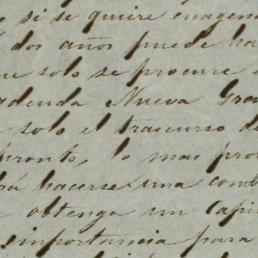 si se quiere enagena
dos años puede ha
solo se procure
Nueva Gra
solo el trascurso d
pronto, lo mas pro
hacerse una comb
obtenga un Capi
importancia para